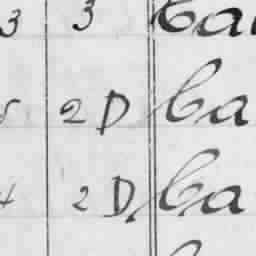 3 3 Ca
2D Ca
2D Ca